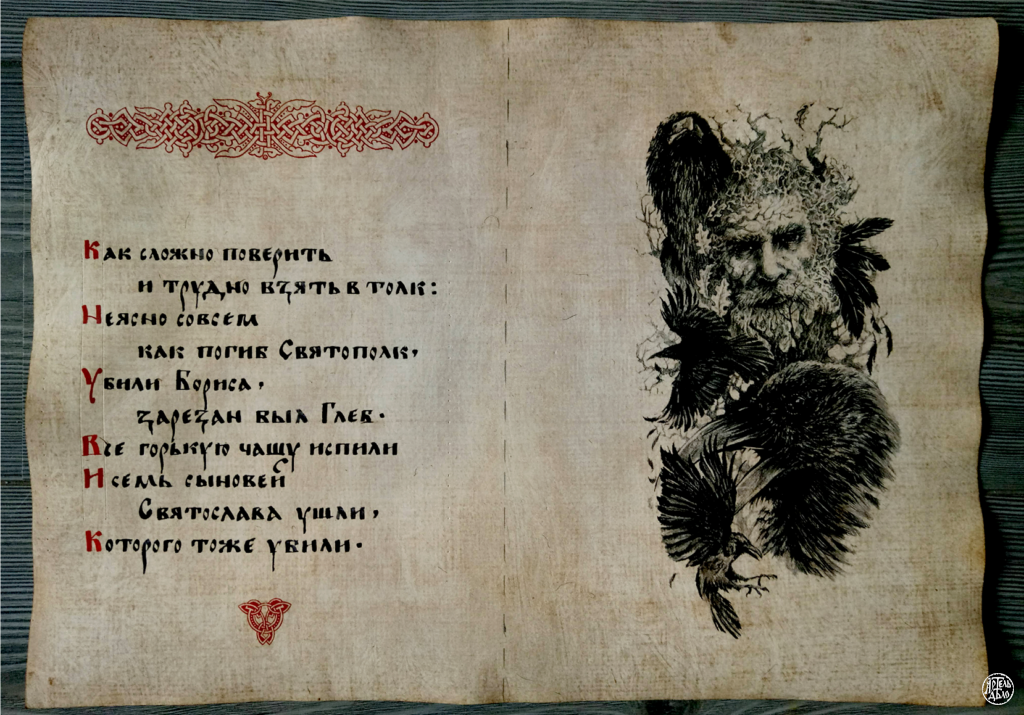 Как сложно поверить
и трудно взять в толк:
Неясно совсем
как погиб Святополк,
Убили Бориса,
зарезан был Глеб.
Все горькую чашу испили
И семь сыновей
Святослава ушли,
Которого тоже убили.
Артель
Дѣло